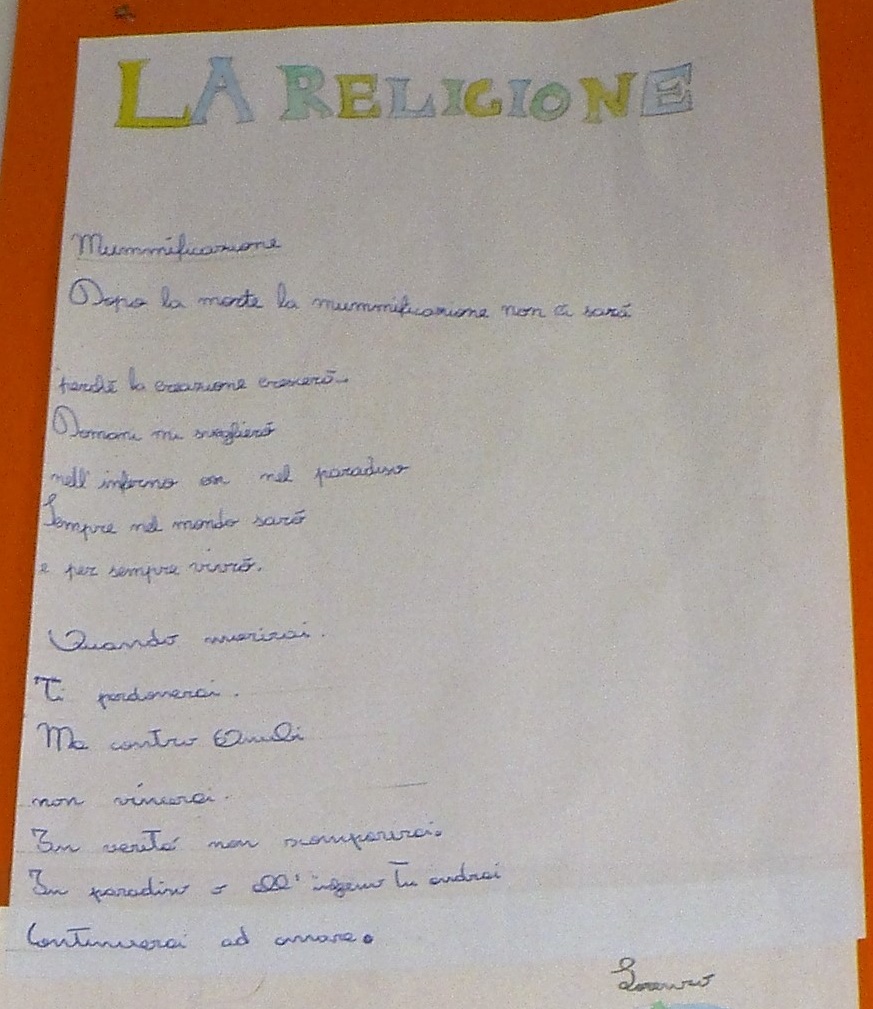 LA RELIGIONE
Mummificazione
Dopo la morte la mummificazione non ci sarà
perché la creazione crescerà
Domani mi sveglierò
nell'inferno nel paradiso
Sempre nel mondo sarò
e per sempre vivrò.
Quando morirai.
Ti perdonerai.
Ma contro
non vincerai.
In verità non scomparirai.
In paradiso o all' tu andrai
Continuerai ad amare.
Lorenzo